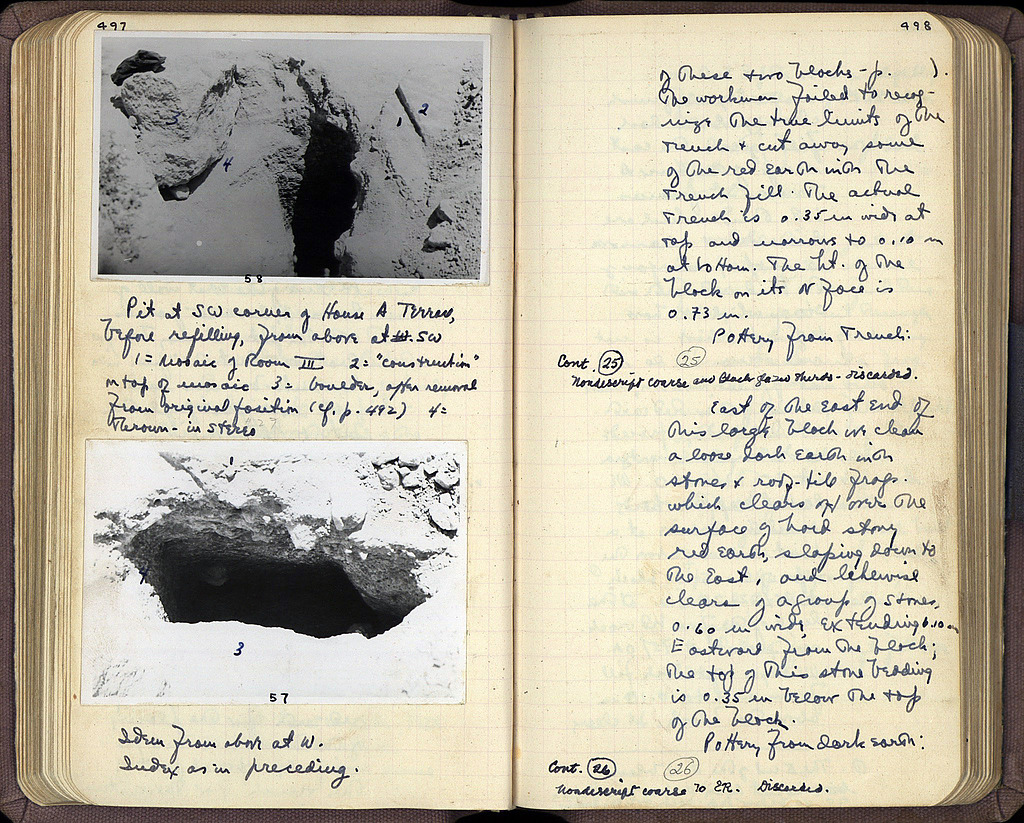 497
1
2
3
4
58
Pit at SW corner of House A Terrace,
before refilling, from above at SW
1 = mosaic of Room III 2 = "construction"
on top of mosaic 3 = boulder, after removal
from original position (cf. p. 492) 4 =
Thrown-in stereo
1
4
3
57
Idem from above at W.
Index as in preceding.
498
of these two blocks - p. ).
The workmen failed to recog-
nize the true limits of the
trench + cut away some
of the red earth with the
trench fill. The actual
trench is 0.35 m wide at
top and narrows to 0.10 m
at bottom. The ht. of the
block on its N face is
0.73 m.
Pottery from Trench:
Cont. 25 25
Nondescript coarse and black glazed sherds - discarded.
East of the East End of
this large block we clean
a loose dark earth with
stones + roof-tile frags.
which clears off over the
surface of hard stony
red earth, sloping down to
the East, and likewise
clears of a group of stones,
0.60 m wide, extending 0.10 m
Eastward from the block;
the top of this stone bedding
is 0.35 m below the top
of the block.
Pottery from dark earth:
Cont. 26 26
Nondescript coarse to ER. Discarded.